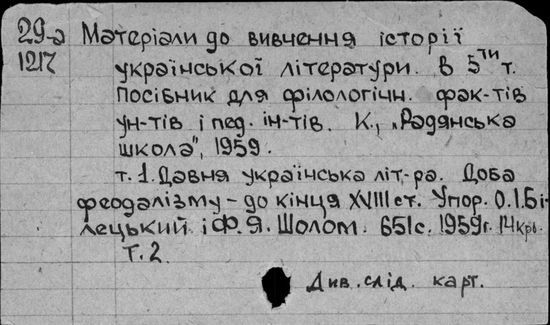 29-а Матеріали до вивчення історії
1217 української літератури. В 5ти т.
Посібник для філологічн. фак-тів
ун-тів і пед. ін-тів. К., „Радянська
школа", 1959.
т. 1. Давня українська літ-ра. Доба
феодалізму - до кінця XVIII ст. Упор. О.І.Бі-
лецький і Ф.Я. Шолом. 651с. 1959г. 14крб.
Т. 2.
Див. слід. карт.